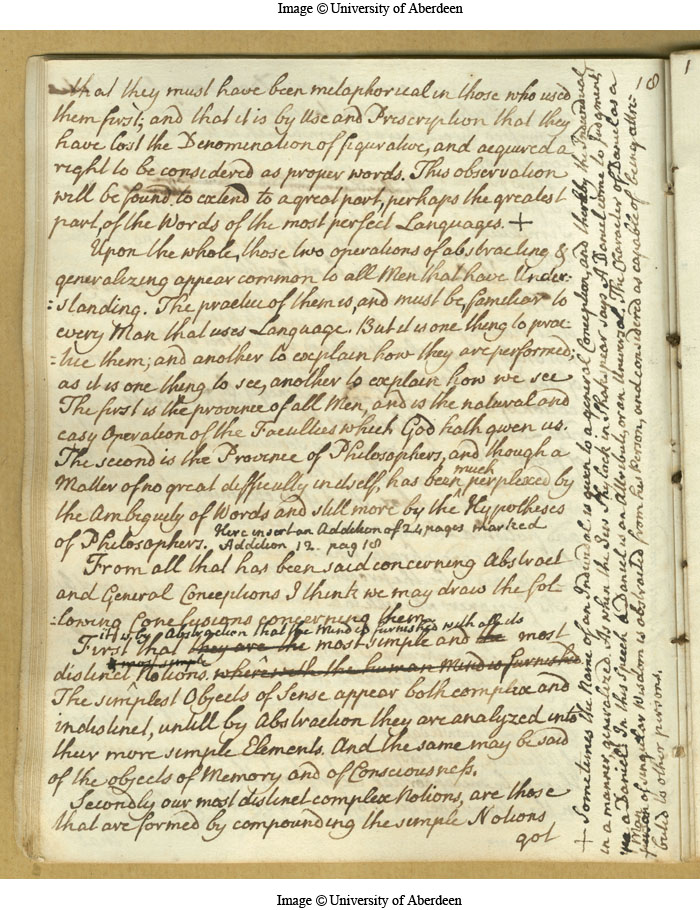 Image © University of Aberdeen
18
that they must have been metaphorical in those who used
them first; and that it is by Use and Prescription that they
have lost the Denomination of figurative, and acquired a
right to be considered as proper words. This observation
will be found to extend to a great part, perhaps the greatest
part, of the Words of the most perfect Languages. +
Upon the whole, those two operations of abstracting &
generalizing appear common to all Men that have Under-
:standing. The practice of them is, and must be, familiar to
every Man that uses Language. But it is one thing to prac-
:tice them, and another to explain how they are performed;
as it is one thing to see, another to explain how we see
The first is the province of all Men, and is the natural and
easy Operation of the Faculties which God hath given us.
The second is the Province of Philosophers, and though a
Matter of no great difficulty in itself, has been much perplexed by
the Ambiguity of Words and still more by the Hypotheses
of Philosophers. Here insert an Addition of 24 pages marked
Addition 12. pag 18
From all that has been said concerning Abstract
and General Conceptions I think we may draw the fol-
:lowing Conclusions concerning them.
it is by Abstraction that the Mind is furnished with all its
First that they are the most simple and the most
& most simple
distinct Notions. wherewith the human Mind is furnished
The simplest Objects of Sense appear both complex and
indistinct, untill by Abstraction they are analyzed into
their more simple Elements. And the same may be said
of the objects of Memory and of Consciousness.
Secondly our most distinct complex Notions, are those
that are formed by compounding the simple Notions
got
+ Sometimes the Name of an Individual is given to a general Conception, and thereby the Individual
in a manner generalized. As when the Jew Shylock in Shakespear says A Daniel come to Judgment,
yea a Daniel. In this Speech a Daniel is an Attribute, or an Universal. The Character of Daniel as a
Man
person of singular Wisdom is abstracted from his Person, and considered as capable of being attri-
buted to other persons.
Image © University of Aberdeen